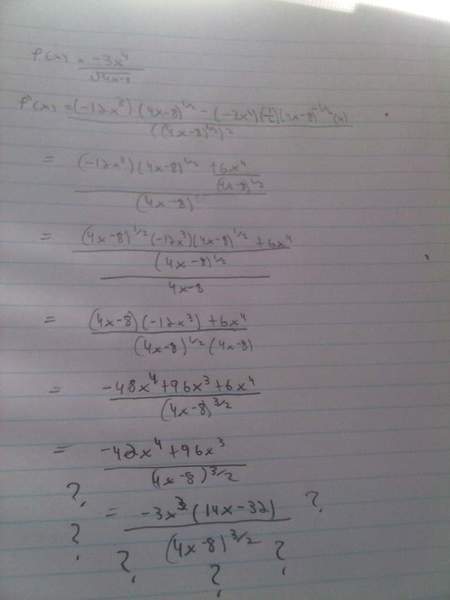 f(x) = -3x⁴ / √4x-8
f'(x) = (-12x³)(4x-8)^1/2 - (-3x⁴)(1/2)(4x-8)^-1/2(4) / ((4x-8)^1/2)²
= (-12x³)(4x-8)^1/2 + 6x⁴/(4x-8)^1/2 / (4x-8)
= (4x-8)^1/2(-12x³)(4x-8)^1/2 + 6x⁴ / (4x-8)^1/2 / 4x-8
= (4x-8)(-12x³) + 6x⁴ / (4x-8)^1/2(4x-8)
= -48x⁴ + 96x³ + 6x⁴ / (4x-8)^3/2
= -42x⁴ + 96x³ / (4x-8)^3/2
? = -3x³(14x-32) / (4x-8)^3/2 ?
? ? ? ?